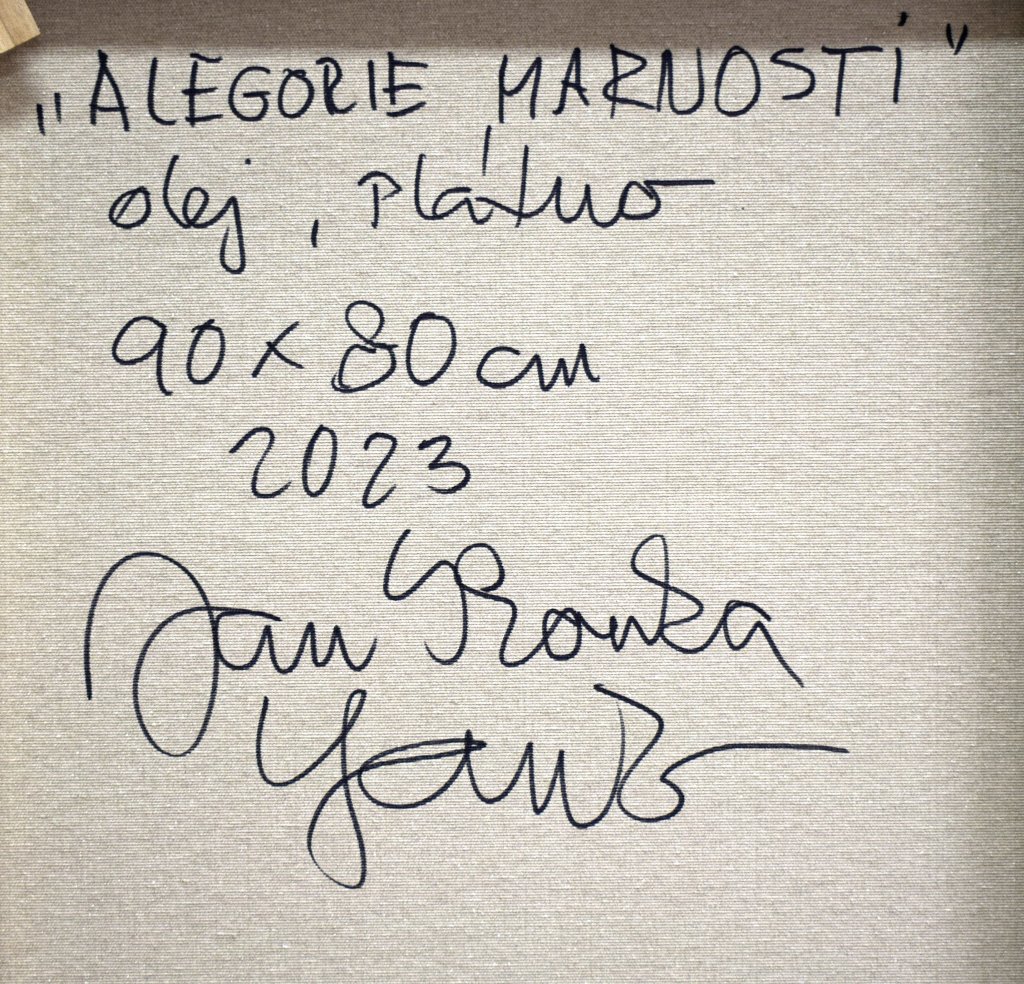 „ALEGORIE MARNOSTI"
olej, plátno
90 x 80 cm
2023
Jan